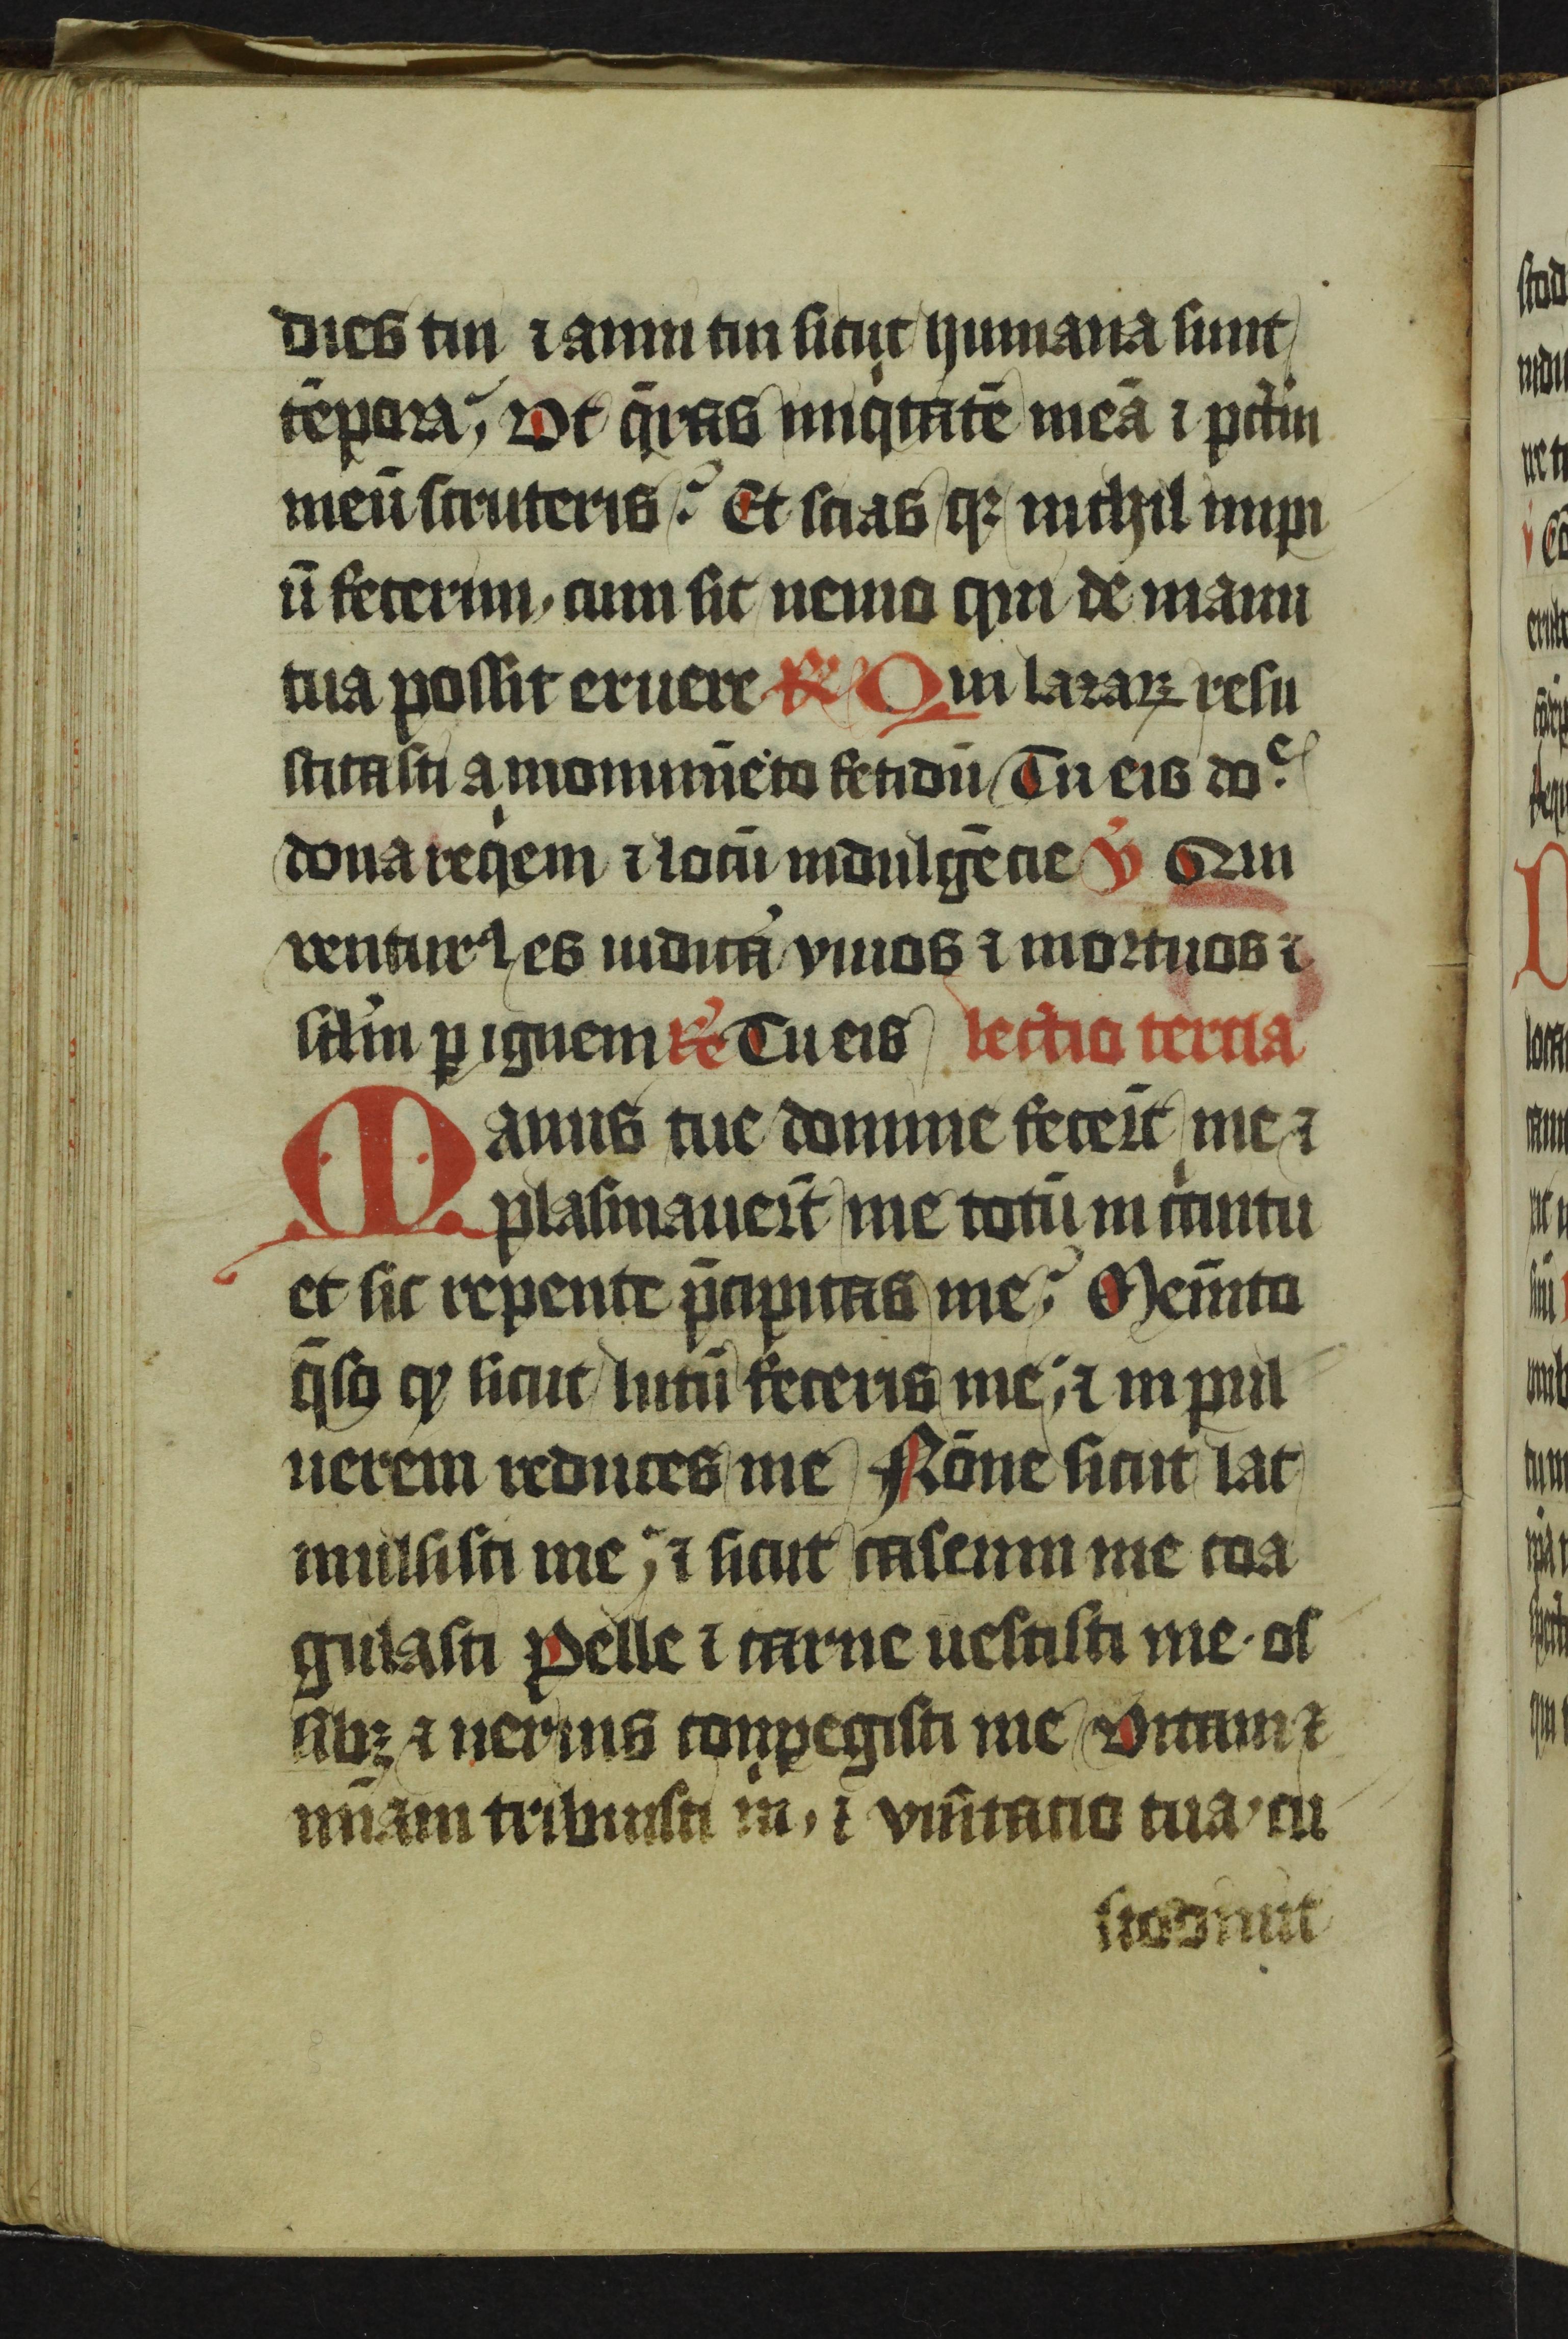 dies tui ⁊ anni tui sicut humana sunt
tēpora, Vt q̄ras iniqͥtatē meā ⁊ pctm̄
meū scruteris? Et scias qꝛ nichil impi
ū fecerim, cum sit nemo qui de manu
tua possit eruere ℟ Qui lazaꝝ resu
scitasti a monumēto fetidū Tu eis do
dona reqͥem ⁊ locū indulgēcie ℣ Qui
venturꝰ es iudicaͤ viuos ⁊ mortuos ⁊
sclm̄ ꝑ ignem ℟ Tu eis lectio tercia
Manus tue domine fecert̄ me ⁊
plasmauert̄ me totū in cͥcuitu
et sic repente p̄cipitas me? Mem̄to
q̄so ꝙ sicut lutū feceris me, ⁊ in pul
uerem reduces me Nōne sicut lac
mulsisti me, ⁊ sicut caseum me coa
gulasti Pelle ⁊ carne uestisti me. os
sibꝫ ⁊ neruis conpegisti me Vitam ⁊
mīam tribuisti m̄, ⁊ visitacio tua cu
stodiuit